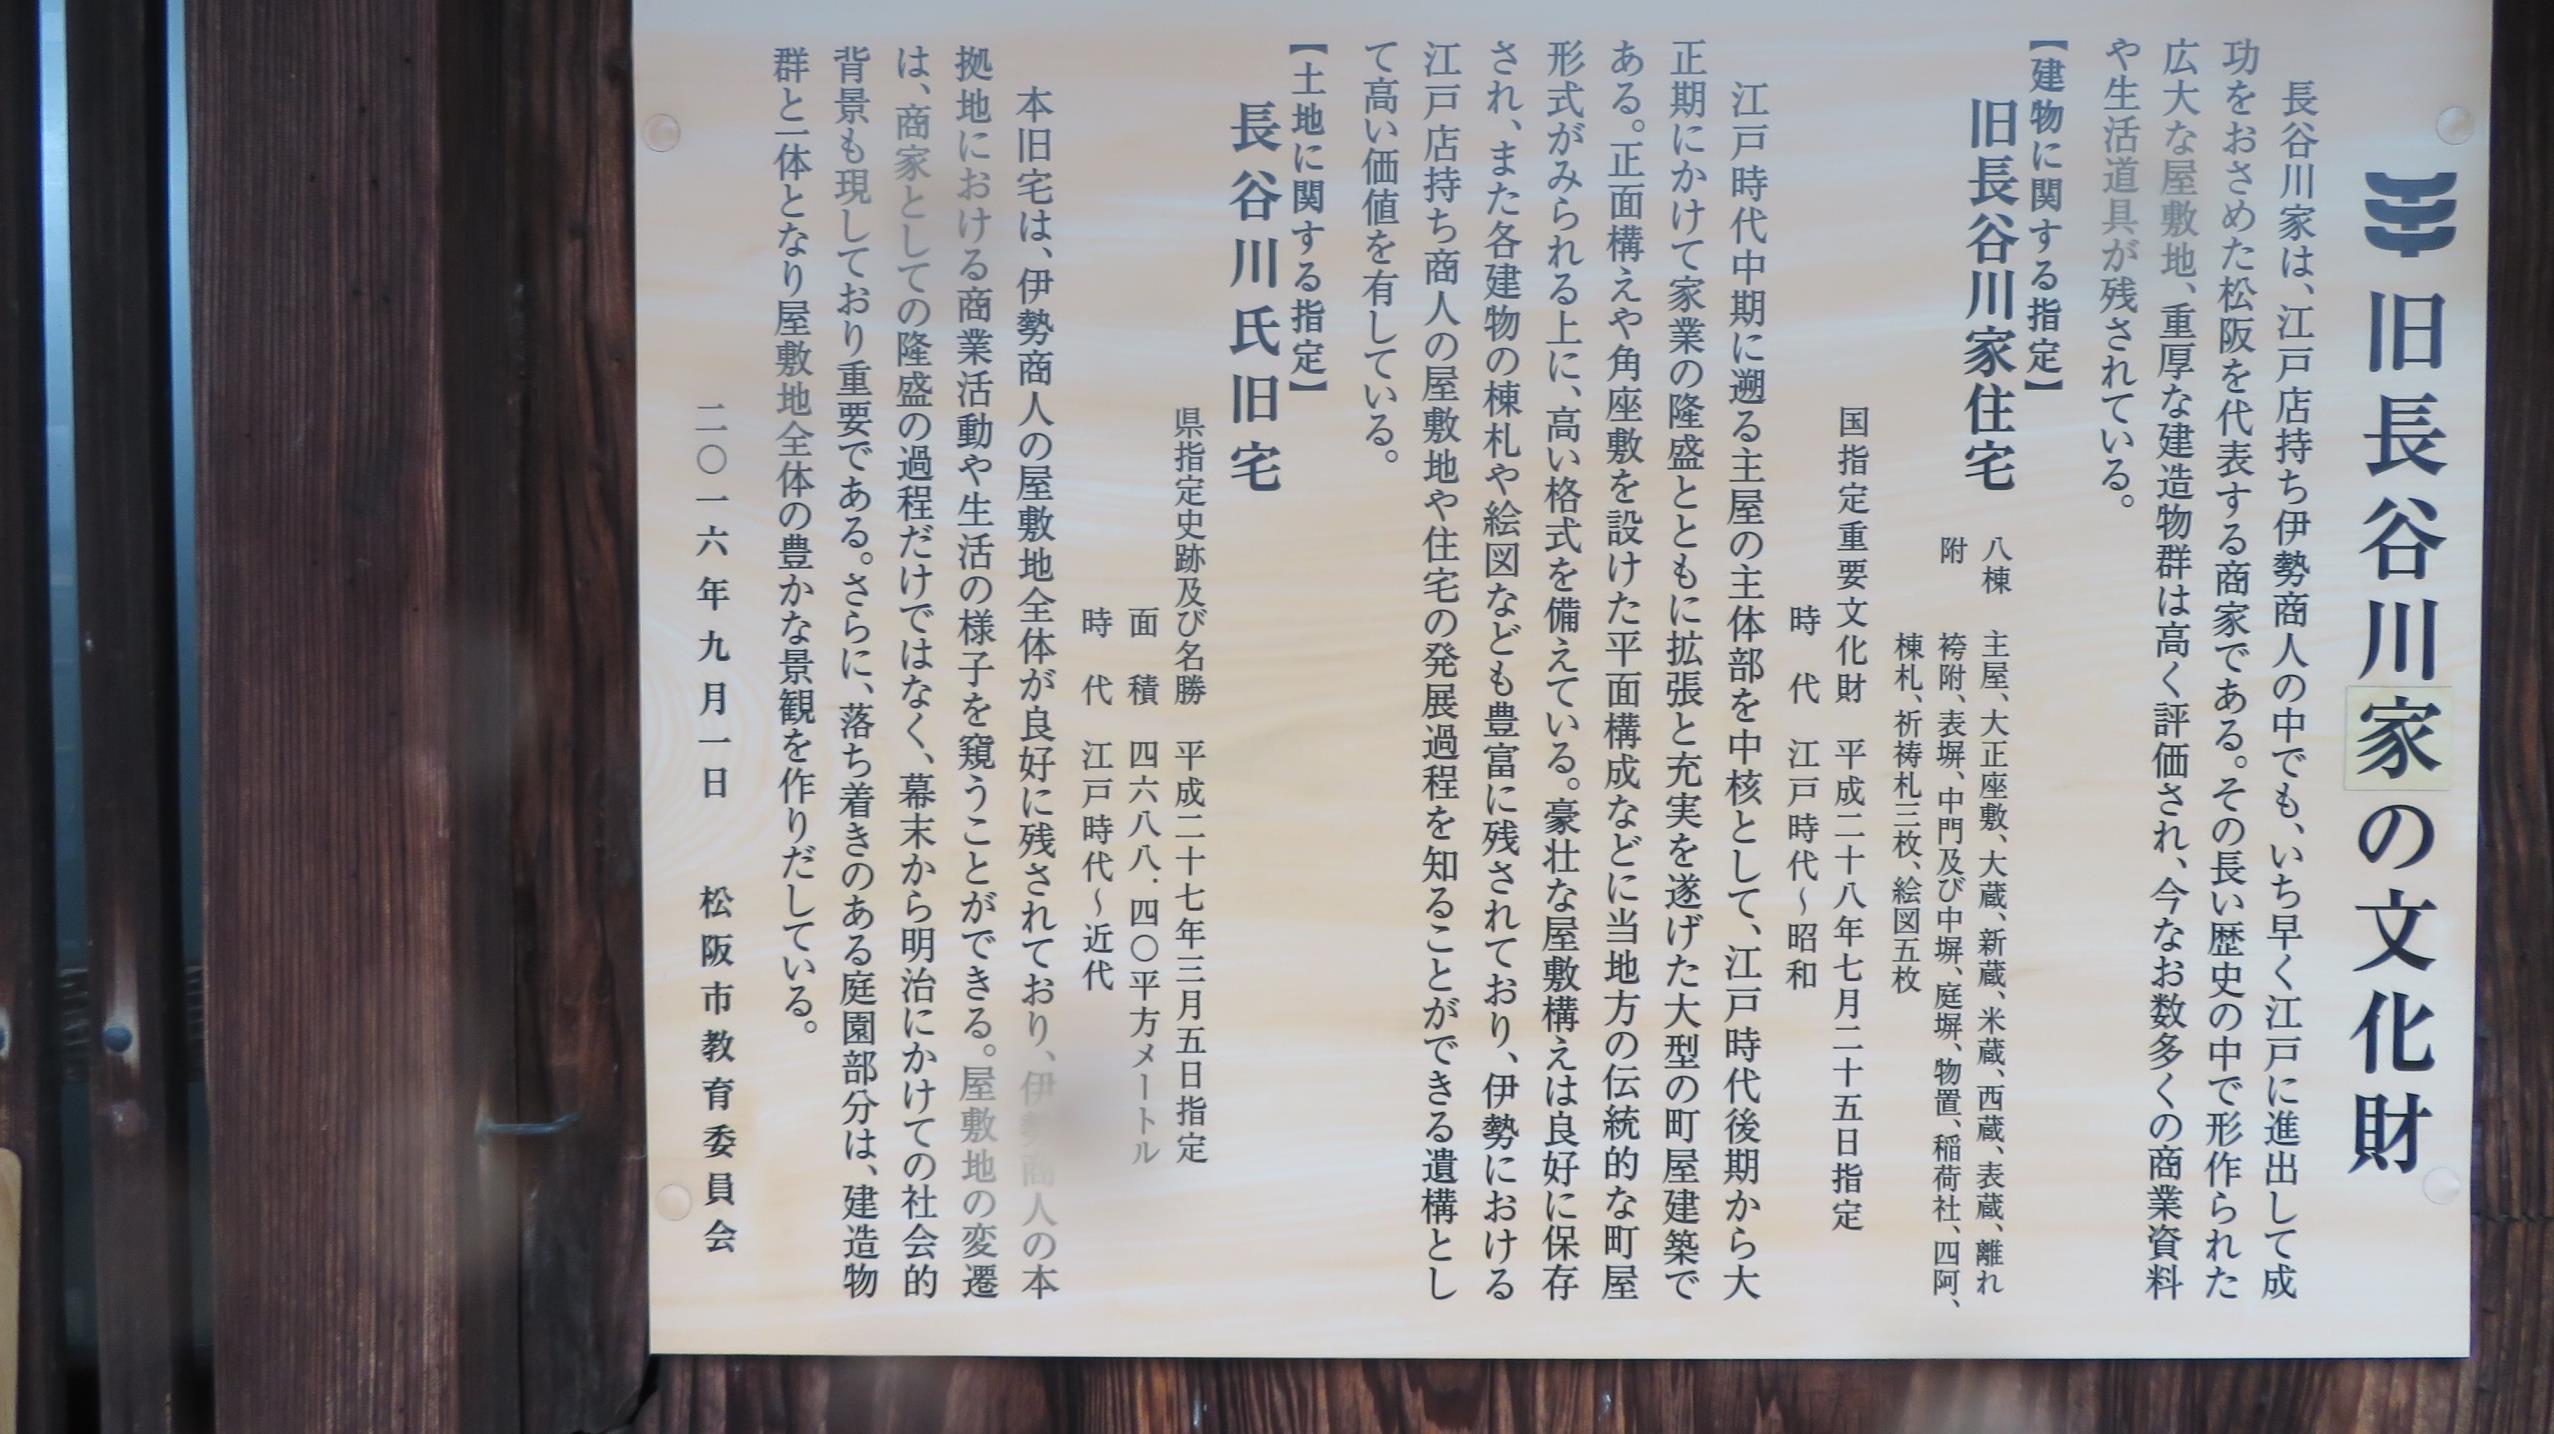 旧長谷川家の文化財
長谷川家は、江戸店持ち伊勢商人の中でも、いち早く江戸に進出して成
功をおさめた松阪を代表する商家である。その長い歴史の中で形作られた
広大な屋敷地、重厚な建造物群は高く評価され、今なお数多くの商業資料
や生活道具が残されている。
【建物に関する指定】
旧長谷川家住宅
八棟　主屋、大正座敷、大蔵、新蔵、米蔵、西蔵、表蔵、離れ
附　袴附、表塀、中門及び中塀、庭塀、物置、稲荷社、四阿、
棟札、祈祷札三枚、絵図五枚
国指定重要文化財　平成二十八年七月二十五日指定
時　代　江戸時代～昭和
江戸時代中期に遡る主屋の主体部を中核として、江戸時代後期から大
正期にかけて家業の隆盛とともに拡張と充実を遂げた大型の町屋建築で
ある。正面構えや角座敷を設けた平面構成などに当地方の伝統的な町屋
形式がみられる上に、高い格式を備えている。豪壮な屋敷構えは良好に保存
され、また各建物の棟札や絵図なども豊富に残されており、伊勢における
江戸店持ち商人の屋敷地や住宅の発展過程を知ることができる遺構とし
て高い価値を有している。
【土地に関する指定】
長谷川氏旧宅
県指定史跡及び名勝　平成二十七年三月五日指定
面　積　四六八八．四〇平方メートル
時　代　江戸時代～近代
本旧宅は、伊勢商人の屋敷地全体が良好に残されており、伊勢商人の本
拠地における商業活動や生活の様子を窺うことができる。屋敷地の変遷
は、商家としての隆盛の過程だけではなく、幕末から明治にかけての社会的
背景も現しており重要である。さらに、落ち着きのある庭園部分は、建造物
群と一体となり屋敷地全体の豊かな景観を作りだしている。
二〇一六年九月一日　松阪市教育委員会